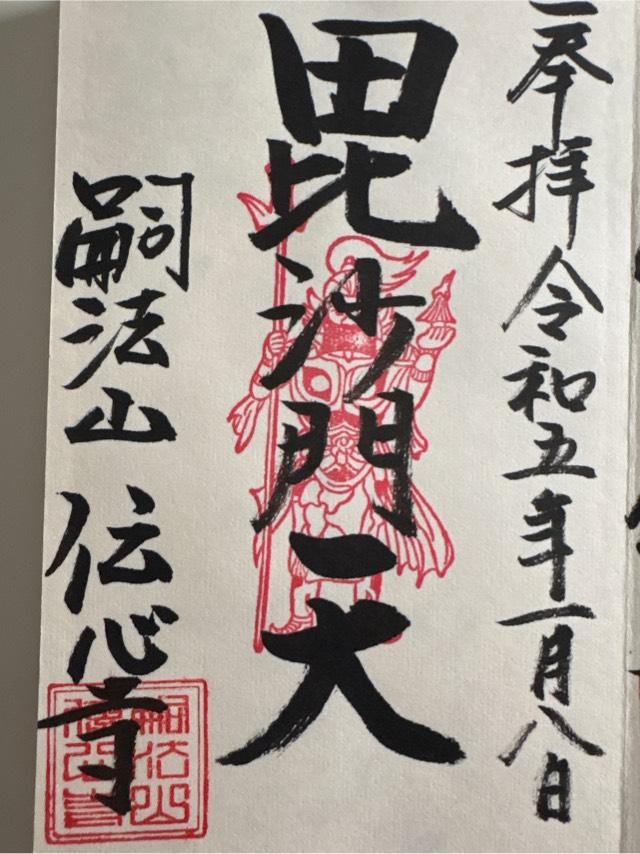 奉拝 令和五年一月八日
毘沙門天
嗣法山 伝心寺